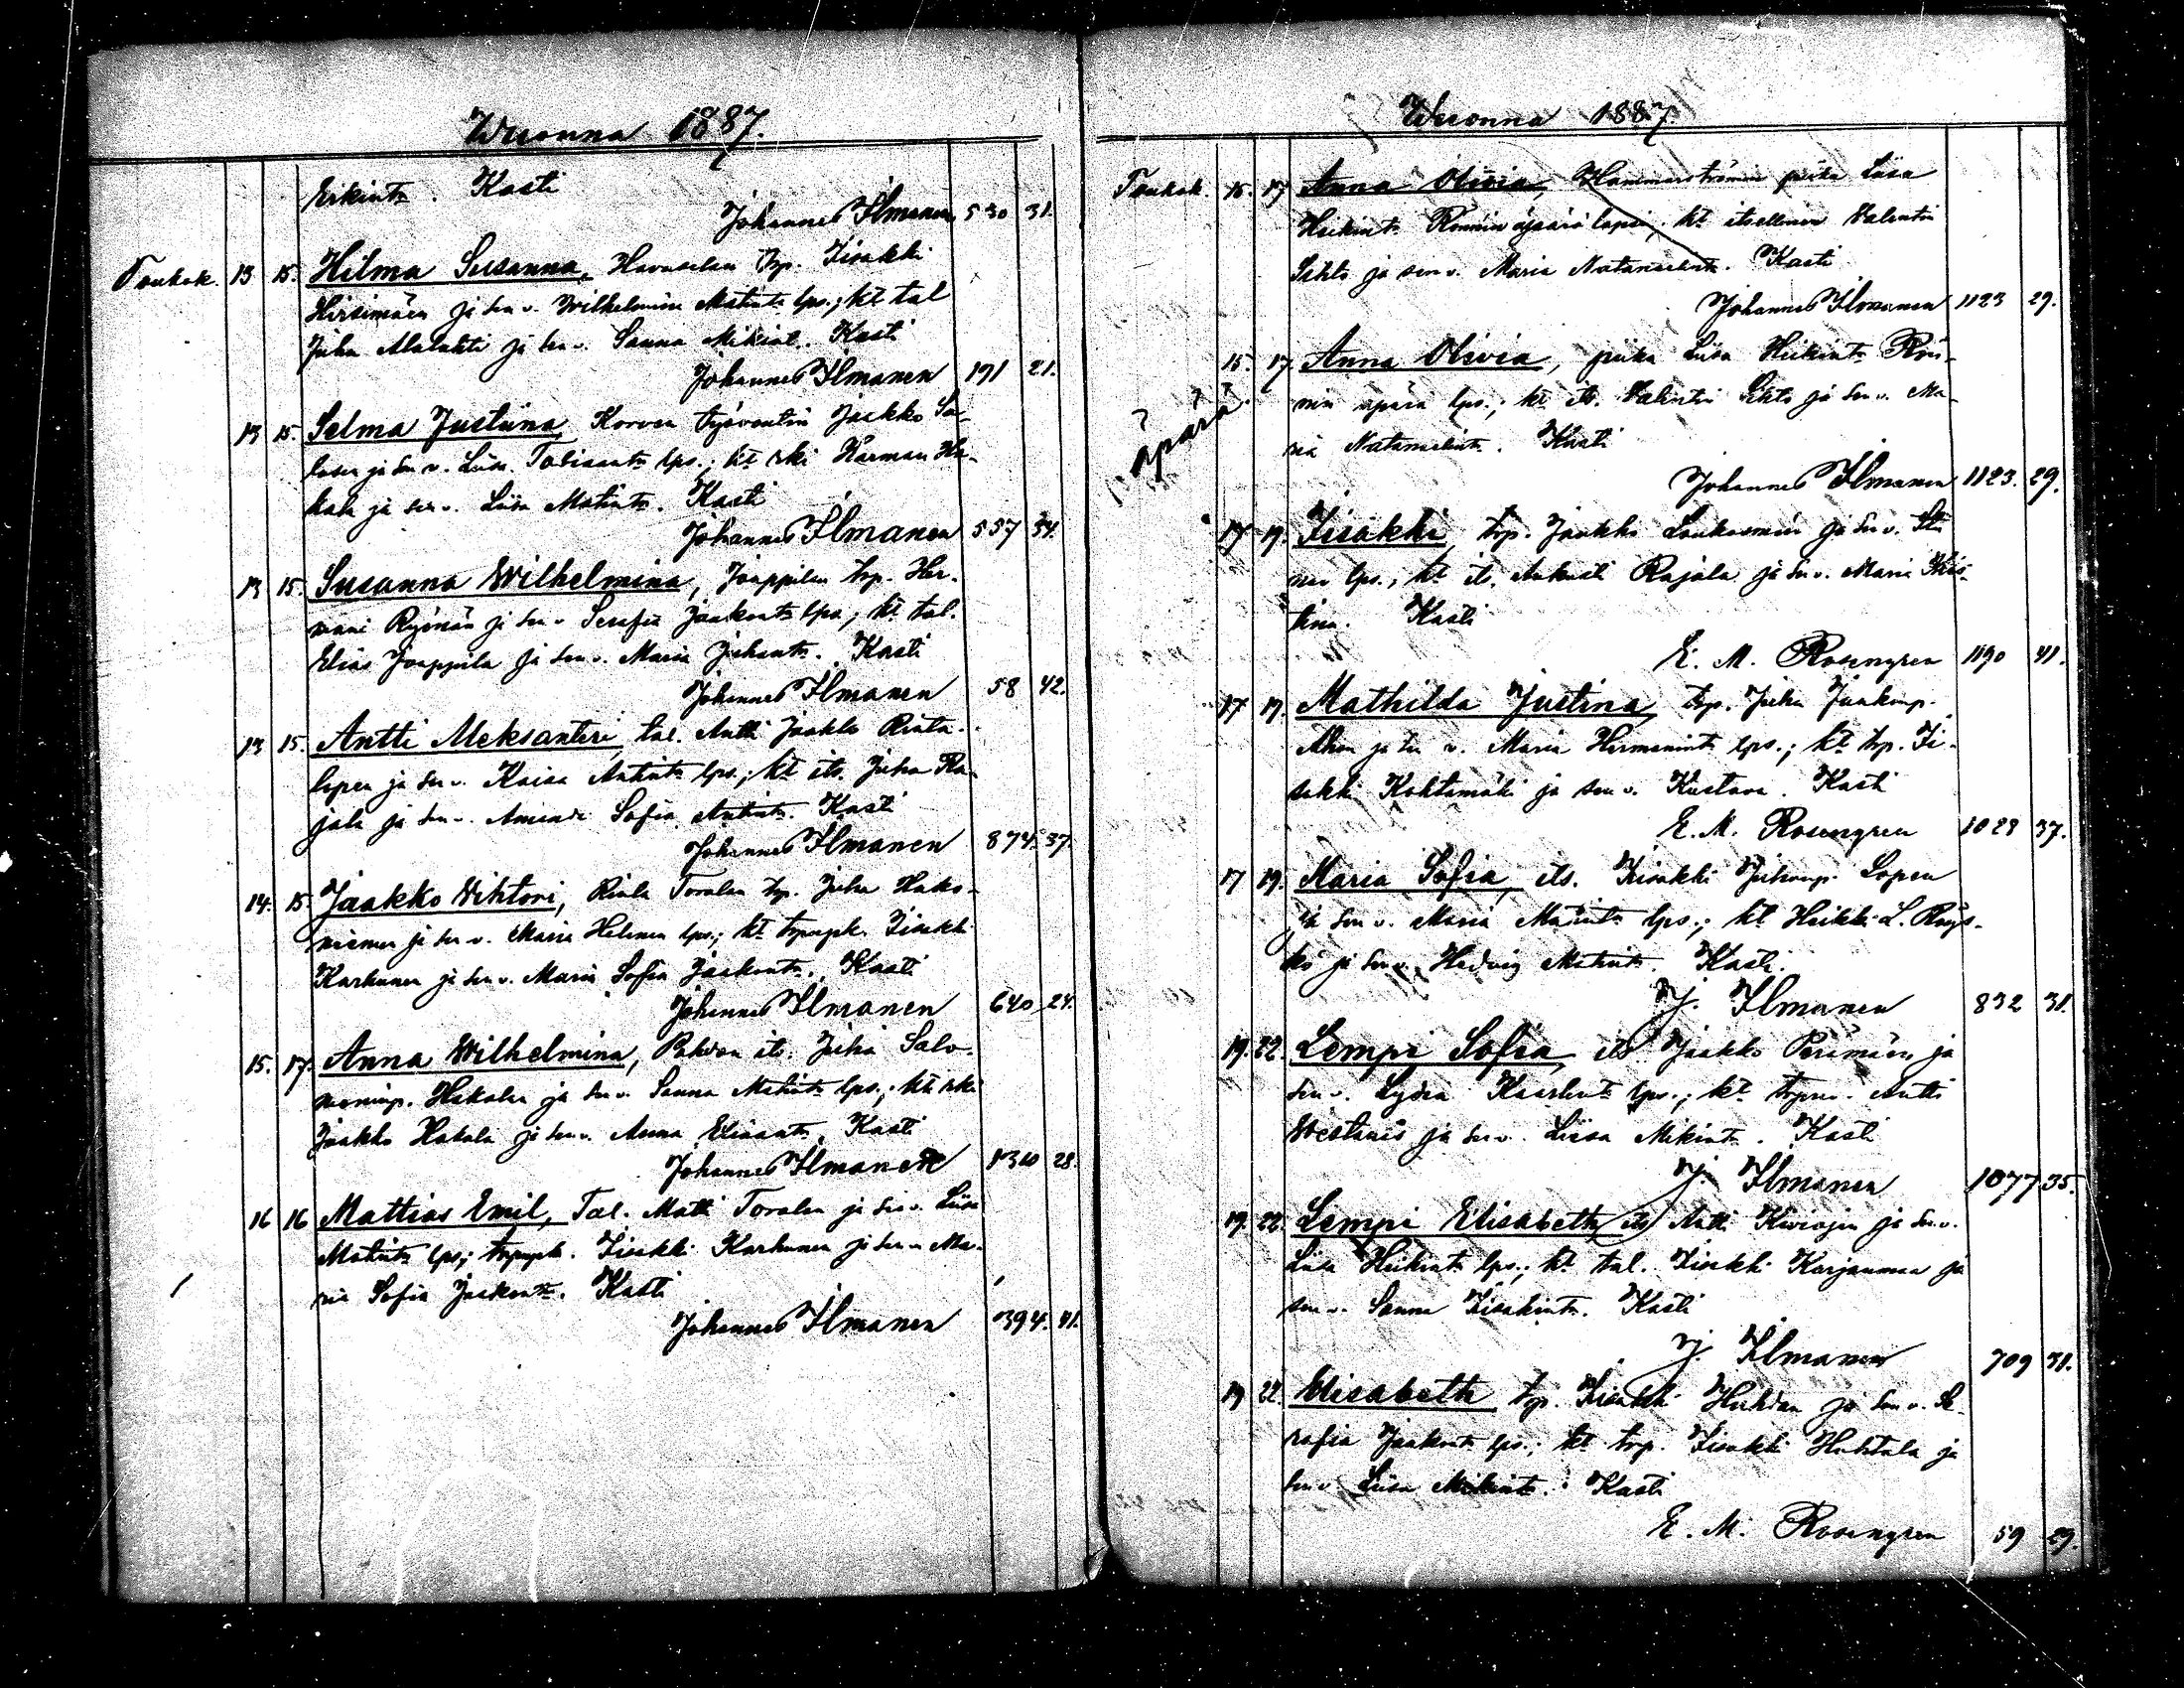 Wuonna 1887.
Erkint. Kasti
Johannes Ilmanen 530 31.
Toukok. 13 15. Hilma Susanna, Havuselan trp. Iisakki
Hirsimäen ja sen v. Wilhelmina Matint. lps.; kt tal
Juha Alalahti ja sen v. Sanna Mikint. Kasti
Johannes Ilmanen 191 21.
13 15. Selma Justiina, Korven työvoutin Jaakko Sa-
losen ja sen v. Liisa Tobiaant. lps.; kt rki Herman Ha-
kala ja sen v. Liisa Matint. Kasti
Johannes Ilmanen 557 34.
13 15. Susanna Wilhelmina, Joappilan trp. Her-
manni Ryömän ja sen v Serafia Jaakont. lps.; kt. tal.
Elias Joappila ja sen v. Maria Juhant. Kasti
Johannes Ilmanen 58 42.
13 15. Antti Aleksanteri, tal. Antti Jaakko Rinta-
lopen ja sen v. Kaisa Antint. lps.; kt its. Juha Ra-
jala ja sen v. Amanda Sofia Antint. Kasti
Johannes Ilmanen 874. 37.
14. 15. Jaakko Wihtori, Rinta Toralan trp. Juha Hako-
niemen ja sen v. Maria Helenan lps.; kt Iisakki
Karhunen ja sen v. Maria Sofia Jaakont. Kasti
Johannes Ilmanen 640 24.
15. 17. Anna Wilhelmina, its. Juha Salo-
moninp. Hakalan ja sen v. Sanna Matint. lps.; kt rki
Jaakko Hakala ja sen v. Anna Eliaant. Kasti
Johannes Ilmanen 1310 28.
16 16 Mattias Emil, Tal. Matti Toralan ja sen v. Liisa
Matint. lps; Iisakki Karhunen ja sen v Ma-
ria Sofia Jaakont. Kasti
Johannes Ilmanen 394. 41.
Wuonna 1887.
Toukok. 15. 17 Anna Olivia, Hammarströmin piika Liisa
Heikint. Rönnin äpärä lapsi; kt. itsellinen Valentin
Sihto ja sen v. Maria Natanaelint. Kasti
Johannes Ilmanen 1123 29.
15. 17. Anna Olivia, piika Liisa Heikint. Rön-
nin äpärä lps.; kt its. Valentin Sihto ja sen v. Ma-
ria Natanaelint. Kasti
äpärä
Johannes Ilmanen 1123. 29.
17 19. Iisakki, trp. Jaakko Loukasmäen ja sen v. San-
nan lps.; kt its. Aukusti Rajala ja sen v. Maria Kris-
tiina. Kasti
E. M. Rosengren 1190 41.
17 19. Mathilda Justina, trp. Juha Jaakonp.
Ahon ja sen v. Maria Hermanint. lps.; kt trp. Ii-
sakki Kohtamäki ja sen v. Kustava. Kasti
E. M. Rosengren 1029 37.
17 19. Maria Sofia, its. Iisakki Juhonp. Lopen
ja sen v. Maria Matint. lps.; kt Heikki L. Röys-
kö ja sen v. Hedvig Matint. Kasti.
J. Ilmanen 832 31.
19. 22. Lempi Sofia, its Jaakko Perämäen ja
sen v. Lydia Kaarlent. lps.; kt. Antti
Westanis ja sen v. Liisa Mikint. Kasti
J. Ilmanen 1077 35.
19. 22. Lempi Elisabeth, its Antti Kiviojan ja sen v.
Liisa Heikint. lps.; kt. tal. Iisakki Karjanmaa ja
sen v. Sanna Iisakint. Kasti
J. Ilmanen 709 31.
19 22. Elisabeth, trp. Iisakki Huhdan ja sen v. Se-
rafia Jaakont. lps.; kt trp. Iisakki Huhtala ja
sen v Liisa Mikint. Kasti
E. M. Rosengren 59 29.